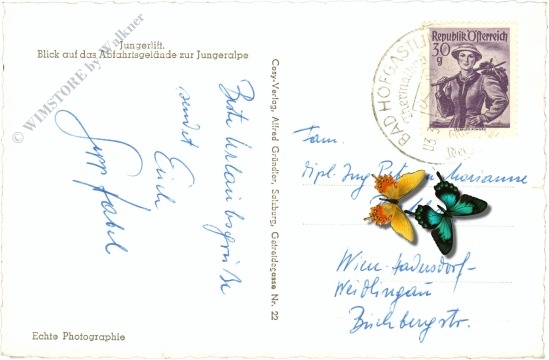 Jungerlift.
Blick auf das Abfahrtsgelände zur Jungeralpe
© WIMSTORE by Walkner
Beste Urlaubsgrüße
sendet
Euch
Sepp
Echte Photographie
Cosy-Verlag, Alfred Gründler, Salzburg, Getreidegasse Nr. 22
BAD HOFGASTEIN
Republik Österreich
30
g
Fam.
Dipl. Ing Marianne
Wien-Hadersdorf-
Weidlingau
Buchbergstr.